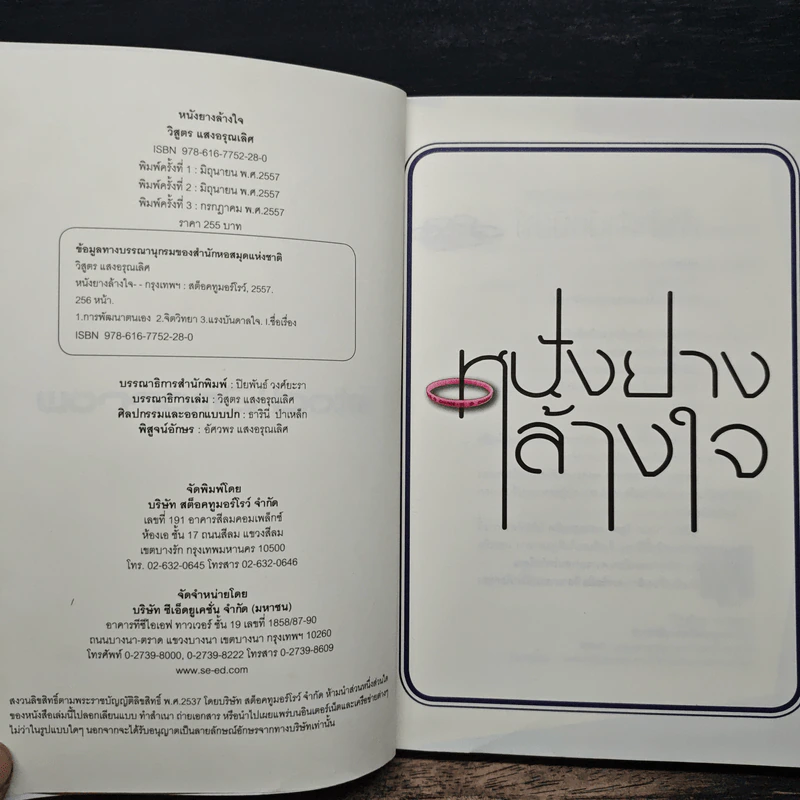 หนังยางล้างใจ
วิสูตร แสงอรุณเลิศ
ISBN 978-616-7752-28-0
พิมพ์ครั้งที่ 1 : มิถุนายน พ.ศ.2557
พิมพ์ครั้งที่ 2 : มิถุนายน พ.ศ.2557
พิมพ์ครั้งที่ 3 : กรกฎาคม พ.ศ.2557
ราคา 255 บาท
ข้อมูลทางบรรณานุกรมของสำนักหอสมุดแห่งชาติ
วิสูตร แสงอรุณเลิศ
หนังยางล้างใจ- - กรุงเทพฯ : สต็อคทูมอร์โรว์, 2557.
256 หน้า.
1.การพัฒนาตนเอง 2.จิตวิทยา 3.แรงบันดาลใจ. I.ชื่อเรื่อง
ISBN 978-616-7752-28-0
บรรณาธิการสำนักพิมพ์ : ปิยพันธ์ วงศ์ยะรา
บรรณาธิการเล่ม : วิสูตร แสงอรุณเลิศ
ศิลปกรรมและออกแบบปก : ธารินี ป่าเหล็ก
พิสูจน์อักษร : อัศวพร แสงอรุณเลิศ
จัดพิมพ์โดย
บริษัท สต็อคทูมอร์โรว์ จำกัด
เลขที่ 191 อาคารสีลมคอมเพล็กซ์
ห้องเอ ชั้น 17 ถนนสีลม แขวงสีลม
เขตบางรัก กรุงเทพมหานคร 10500
โทร. 02-632-0645 โทรสาร 02-632-0646
จัดจำหน่ายโดย
บริษัท ซีเอ็ดยูเคชั่น จำกัด (มหาชน)
อาคารทีซีไอเอฟ ทาวเวอร์ ชั้น 19 เลขที่ 1858/87-90
ถนนบางนา-ตราด แขวงบางนา เขตบางนา กรุงเทพฯ 10260
โทรศัพท์ 0-2739-8000, 0-2739-8222 โทรสาร 0-2739-8609
www.se-ed.com
สงวนลิขสิทธิ์ตามพระราชบัญญัติลิขสิทธิ์ พ.ศ.2537 โดยบริษัท สต็อคทูมอร์โรว์ จำกัด ห้ามนำส่วนหนึ่งส่วนใด
ของหนังสือเล่มนี้ไปลอกเลียนแบบ ทำสำเนา ถ่ายเอกสาร หรือนำไปเผยแพร่บนอินเตอร์เน็ตและเครือข่ายต่างๆ
ไม่ว่าในรูปแบบใดๆ นอกจากจะได้รับอนุญาตเป็นลายลักษณ์อักษรจากทางบริษัทเท่านั้น
หนังยาง
ล้างใจ